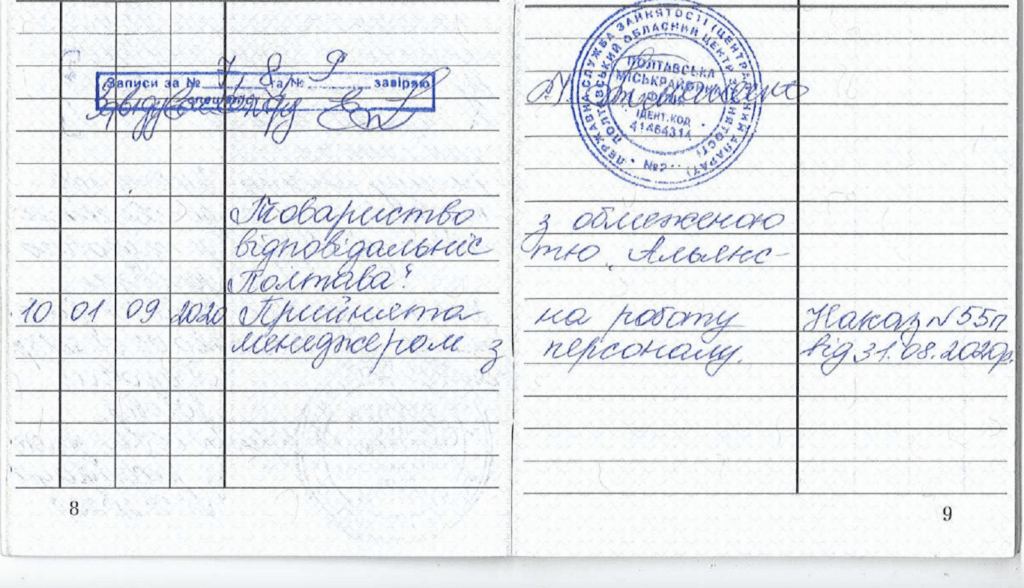 Записи за № 7, 8, 9 та № завіряю
ДЕРЖАВНА СЛУЖБА ЗАЙНЯТОСТІ (ЦЕНТРАЛЬНИЙ АПАРАТ)
ПОЛТАВСЬКИЙ ОБЛАСНИЙ ЦЕНТР ЗАЙНЯТОСТІ
ПОЛТАВСЬКА
МІСЬКРАЙОННА
ФІЛІЯ
ІДЕНТ.КОД
41464314
№2
Товариство з обмеженою
відповідальніс тю „Альянс-
Полтава"
10 01 09 2020 Прийнята на роботу Наказ №55п
менеджером з персоналу. від 31.08.2020р.
8
9